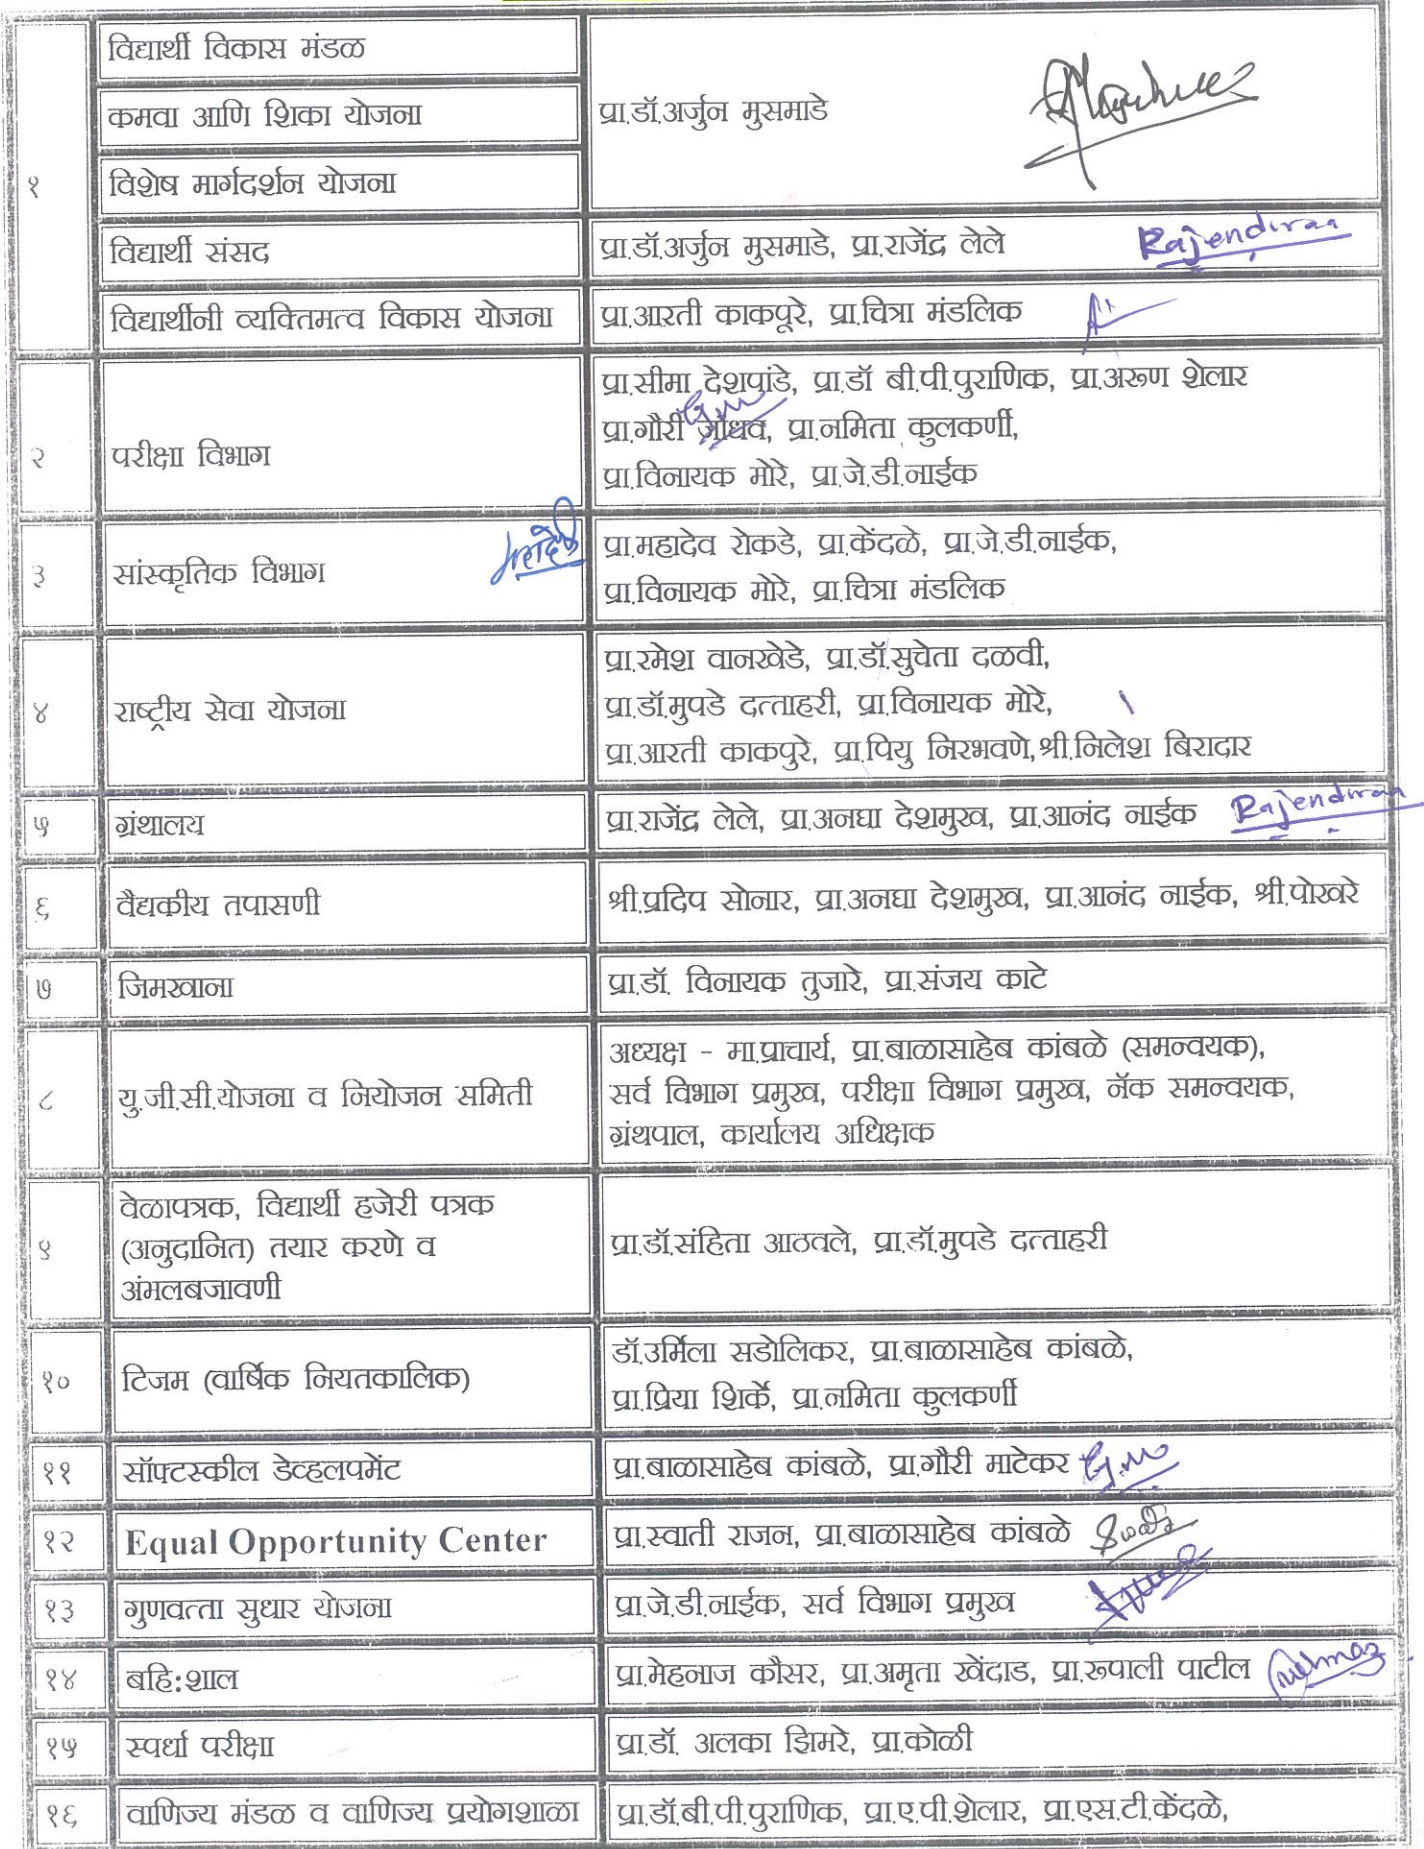 विद्यार्थी विकास मंडळ
कमवा आणि शिका योजना
प्रा.डॉ.अर्जुन मुसमाडे
१
विशेष मार्गदर्शन योजना
विद्यार्थी संसद
प्रा.डॉ.अर्जुन मुसमाडे, प्रा.राजेंद्र लेले
Rajendraa
विद्यार्थीनी व्यक्तिमत्व विकास योजना
प्रा.आरती काकपूरे, प्रा.चित्रा मंडलिक
२
परीक्षा विभाग
प्रा.सीमा देशपांडे, प्रा.डॉ बी.पी.पुराणिक, प्रा.अरूण शेलार
प्रा.गौरी जाधव, प्रा.नमिता कुलकर्णी,
प्रा.विनायक मोरे, प्रा.जे.डी.नाईक
३
सांस्कृतिक विभाग
प्रा.महादेव रोकडे, प्रा.केंदळे, प्रा.जे.डी.नाईक,
प्रा.विनायक मोरे, प्रा.चित्रा मंडलिक
४
राष्ट्रीय सेवा योजना
प्रा.रमेश वानखेडे, प्रा.डॉ.सुचेता दळवी,
प्रा.डॉ.मुपडे दत्ताहरी, प्रा.विनायक मोरे,
प्रा.आरती काकपुरे, प्रा.पियु निरभवणे,श्री.निलेश बिरादार
५
ग्रंथालय
प्रा.राजेंद्र लेले, प्रा.अनघा देशमुख, प्रा.आनंद नाईक
Rajendraa
६
वैद्यकीय तपासणी
श्री.प्रदिप सोनार, प्रा.अनघा देशमुख, प्रा.आनंद नाईक, श्री.पोखरे
७
जिमखाना
प्रा.डॉ. विनायक तुजारे, प्रा.संजय काटे
८
यु.जी.सी.योजना व नियोजन समिती
अध्यक्ष - मा.प्राचार्य, प्रा.बाळासाहेब कांबळे (समन्वयक),
सर्व विभाग प्रमुख, परीक्षा विभाग प्रमुख, नॅक समन्वयक,
ग्रंथपाल, कार्यालय अधिक्षक
९
वेळापत्रक, विद्यार्थी हजेरी पत्रक
(अनुदानित) तयार करणे व
अंमलबजावणी
प्रा.डॉ.संहिता आठवले, प्रा.डॉ.मुपडे दत्ताहरी
१०
टिजम (वार्षिक नियतकालिक)
डॉ.उर्मिला सडोलिकर, प्रा.बाळासाहेब कांबळे,
प्रा.प्रिया शिर्के, प्रा.नमिता कुलकर्णी
११
सॉफ्टस्कील डेव्हलपमेंट
प्रा.बाळासाहेब कांबळे, प्रा.गौरी माटेकर
१२
Equal Opportunity Center
प्रा.स्वाती राजन, प्रा.बाळासाहेब कांबळे
१३
गुणवत्ता सुधार योजना
प्रा.जे.डी.नाईक, सर्व विभाग प्रमुख
१४
बहि:शाल
प्रा.मेहनाज कौसर, प्रा.अमृता खेंदाड, प्रा.रूपाली पाटील
१५
स्पर्धा परीक्षा
प्रा.डॉ. अलका झिमरे, प्रा.कोळी
१६
वाणिज्य मंडळ व वाणिज्य प्रयोगशाळा
प्रा.डॉ.बी.पी.पुराणिक, प्रा.ए.पी.शेलार, प्रा.एस.टी.केंदळे,